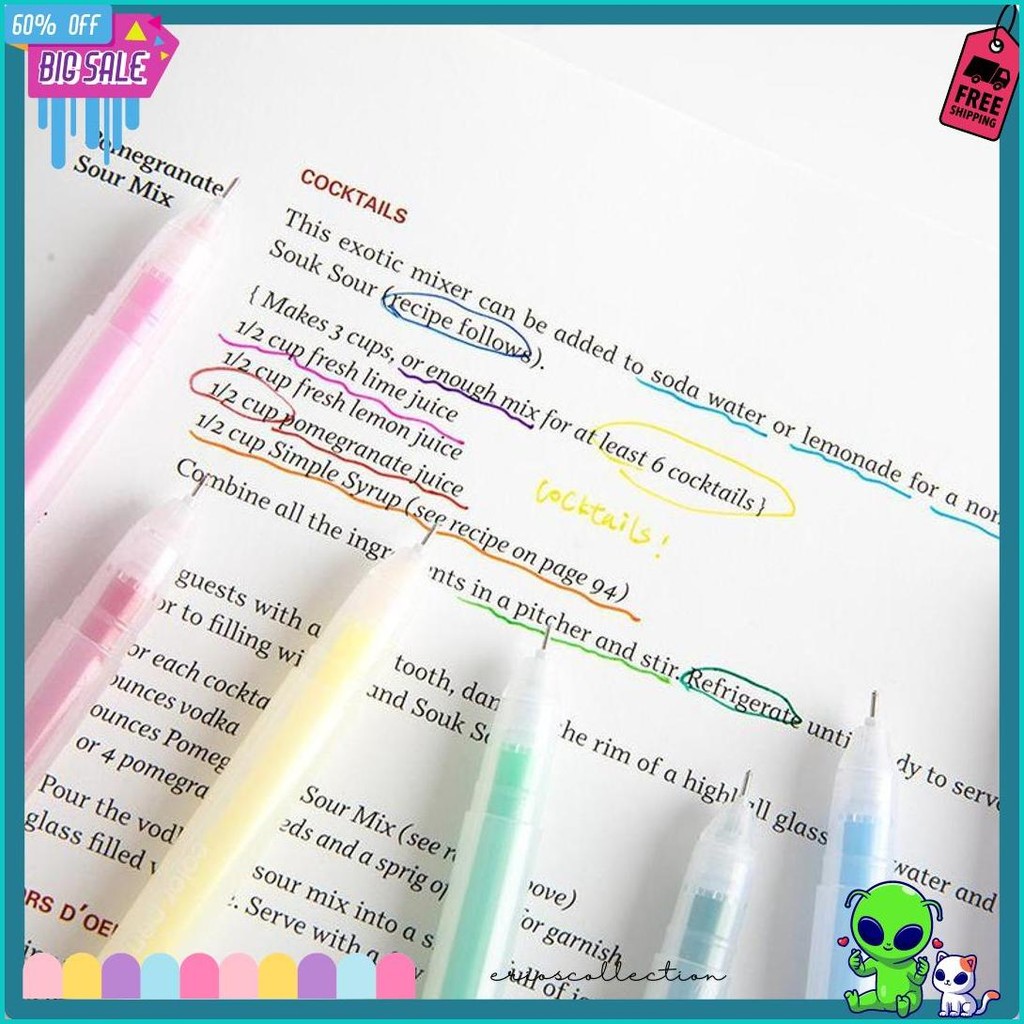 60% OFF
BIG SALE
FREE
SHIPPING
Pomegranate
Sour Mix
COCKTAILS
This exotic mixer can be added to soda water or lemonade for a non
Souk Sour (recipe follows).
{ Makes 3 cups, or enough mix for at least 6 cocktails }
1/2 cup fresh lime juice
1/2 cup fresh lemon juice
1/2 cup pomegranate juice
1/2 cup Simple Syrup (see recipe on page 94)
cocktails!
Combine all the ingr nts in a pitcher and stir. Refrigerate unti dy to serve
guests with a tooth, dan he rim of a highball glass water and
or to filling wi and Souk S
or each cockta
ounces vodka
ounces Pomeg
or 4 pomegra
Sour Mix (see r ove)
eds and a sprig o for garnish
Pour the vod sour mix into a s
glass filled . Serve with a
ORS D'OE
eryoscollection